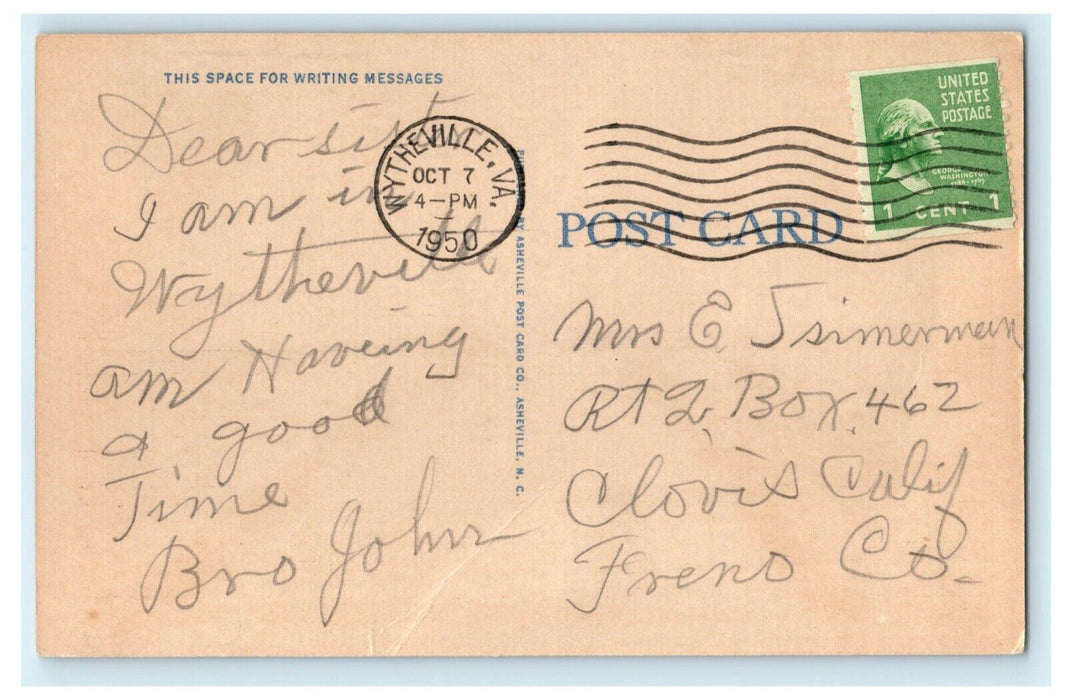 THIS SPACE FOR WRITING MESSAGES
Dear sist
I am in
Wytheville
am Haveing
a good
Time
Bro John
WYTHEVILLE, VA.
OCT 7
4-PM
1950
BY ASHEVILLE POST CARD CO., ASHEVILLE, N. C.
UNITED
STATES
POSTAGE
GEORGE
WASHINGTON
1789-1797
1 CENT 1
POST CARD
Mrs E Tsimerman
Rt 2, Box, 462
Clovis Calif
Freno Co.